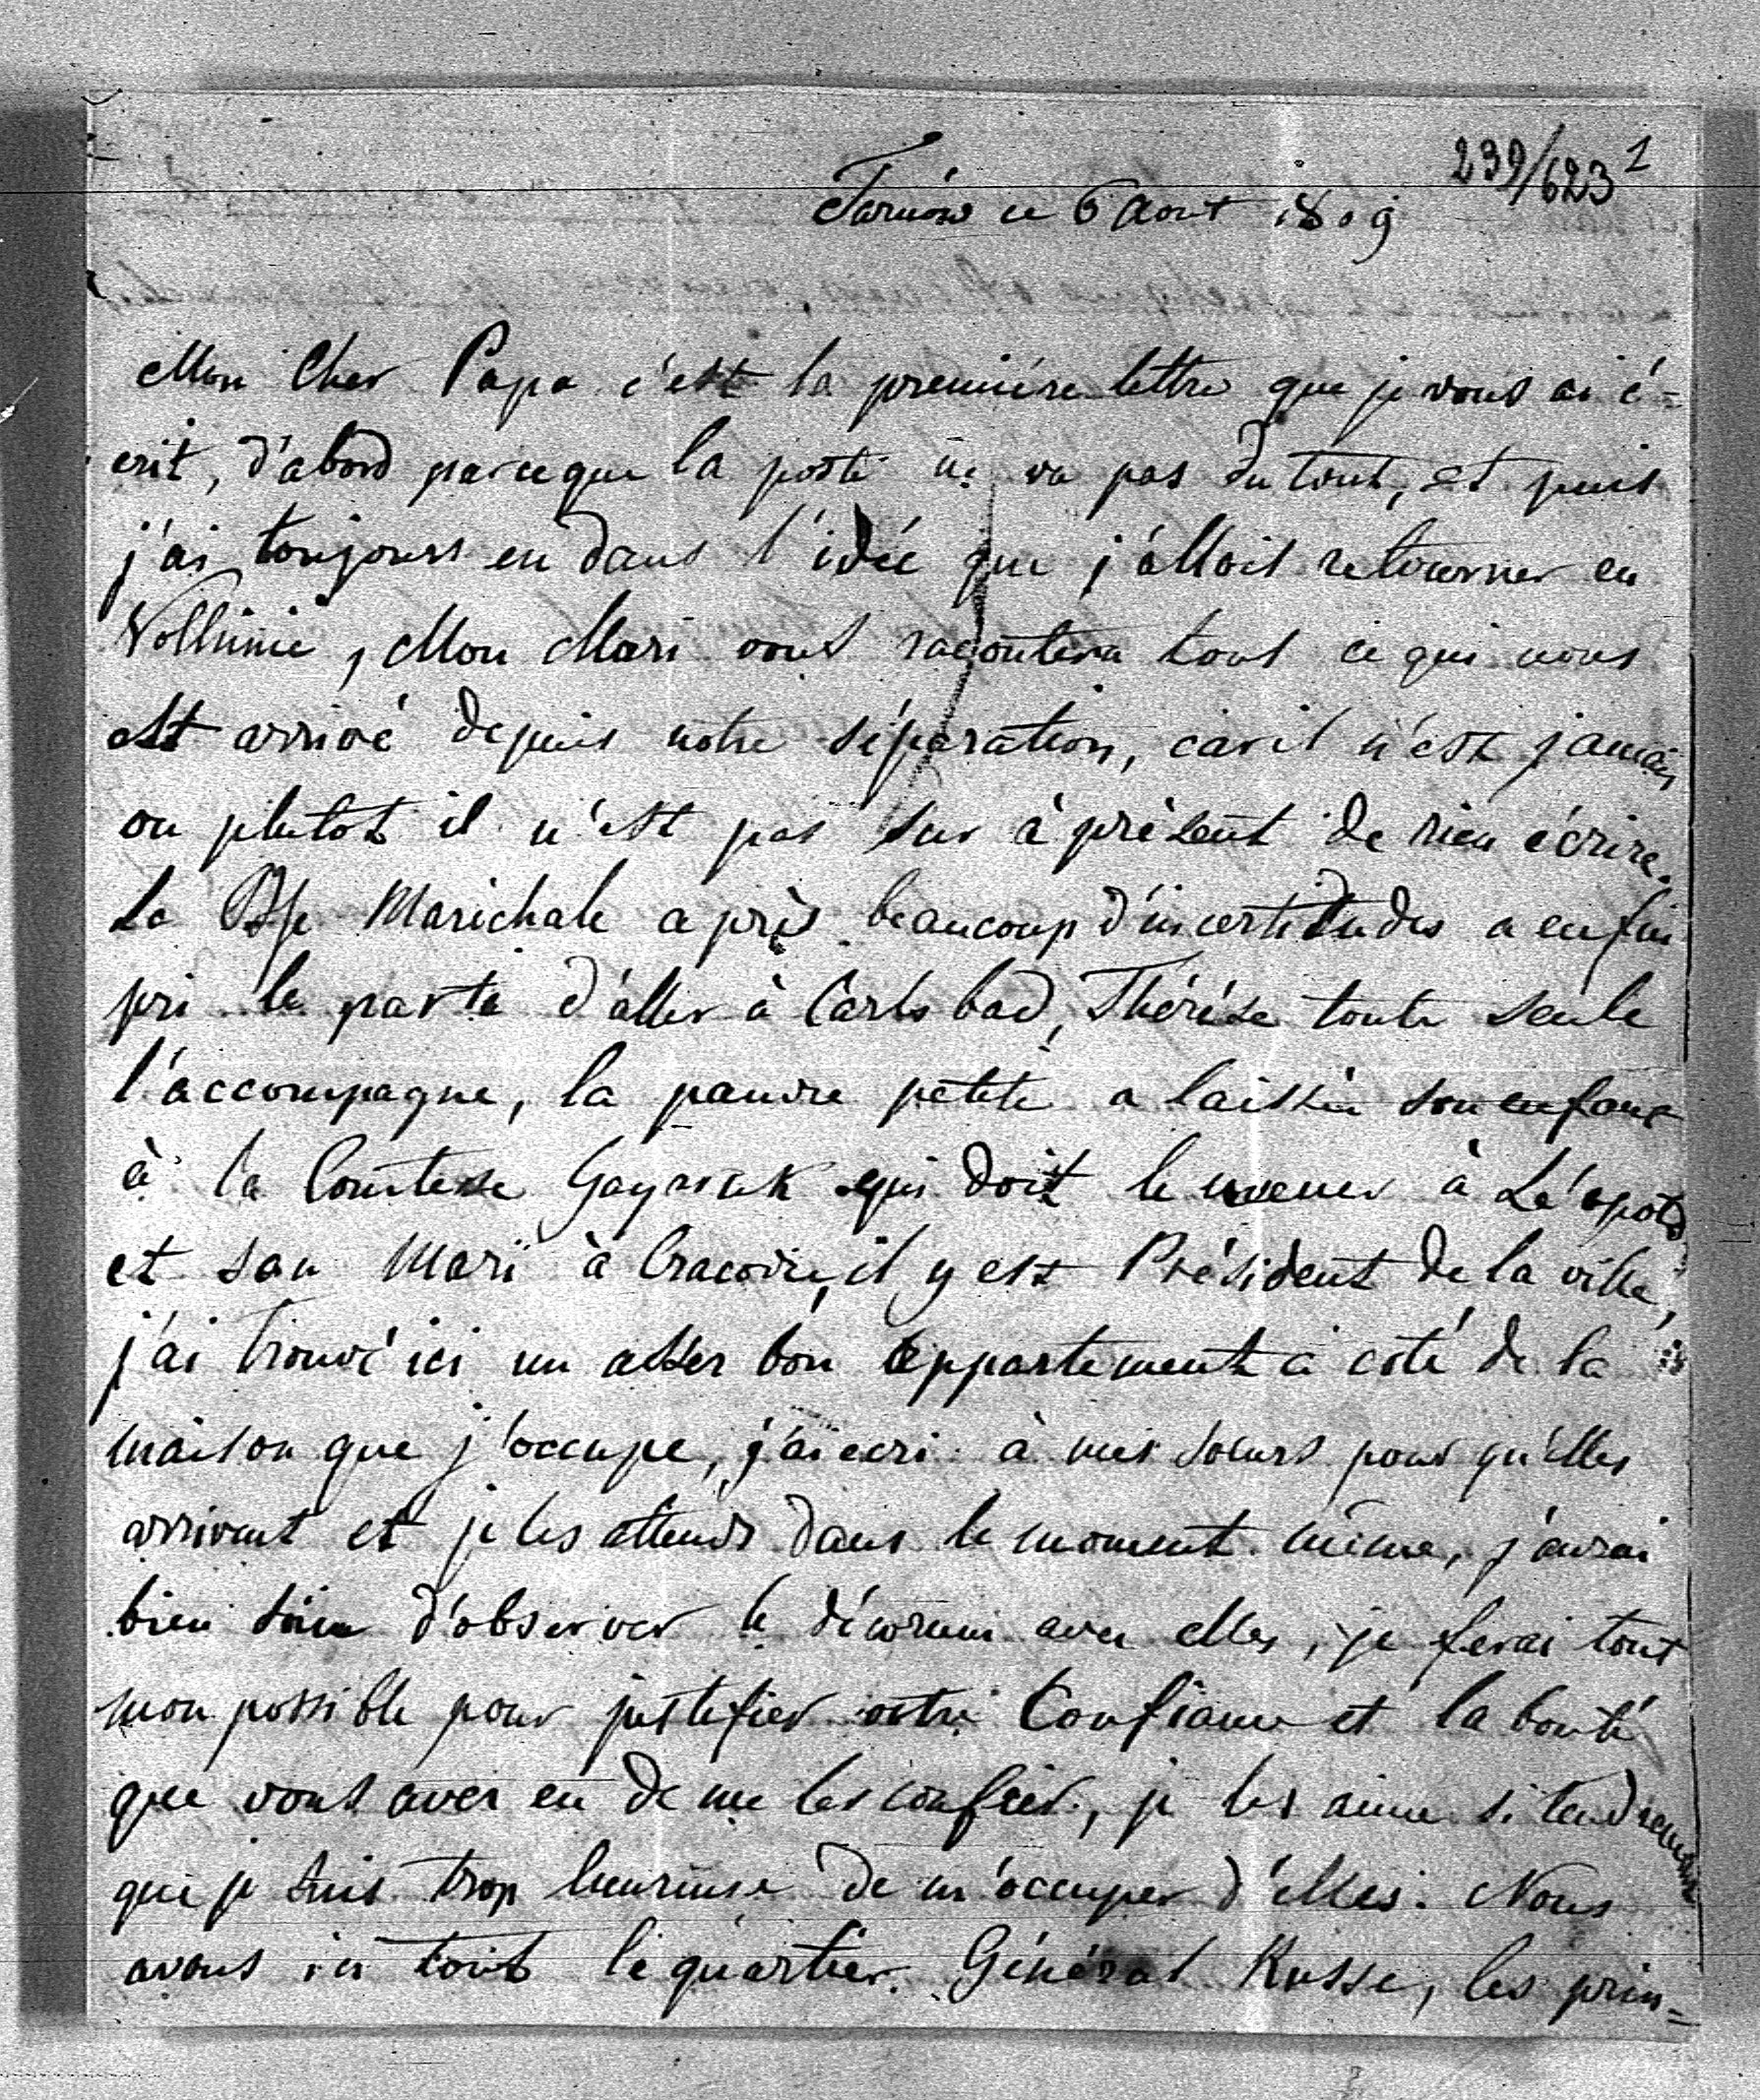 239/623 1
Tarnów ce 6 Aout 1809
Mon Cher Papa c'est la première lettre que je vous ai é=
crit, d'abord parceque la poste ne va pas du tout, et puis
j'ai toujours eu dans l'idée que j'allois retourner en
Volhinie, Mon Mari vous racontera tout ce qui nous
est arrivé depuis notre séparation, car il n'est jamais
ou plutot il n'est pas sur à présent de rien écrire.
La Psse Maréchale après beaucoup d'incertitudes a enfin
pri le parti d'aller à Carlsbad, Thérése toute seule
l'accompagne, la pauvre petite a laissée son enfant
à la Comtesse qui doit le mener à Léopold
et son Mari à Cracovie, il y est Président de la ville,
j'ai trouvé ici un asser bon appartement à coté de la
maison que j'occupe, j'ai ecri à mes soeurs pour qu'elles
arrivent et je les attends dans le moment même, j'aurai
bien soin d'observer le décorum avec elles, je ferai tout
mon possible pour justifier votre Confiance et la bonté
que vous aver eu de me les confier, je les aime si tendrement
que je suis trop heureuse de m'occuper d'elles. Nous
avons ici tout le quartier Général Russe, les prin=